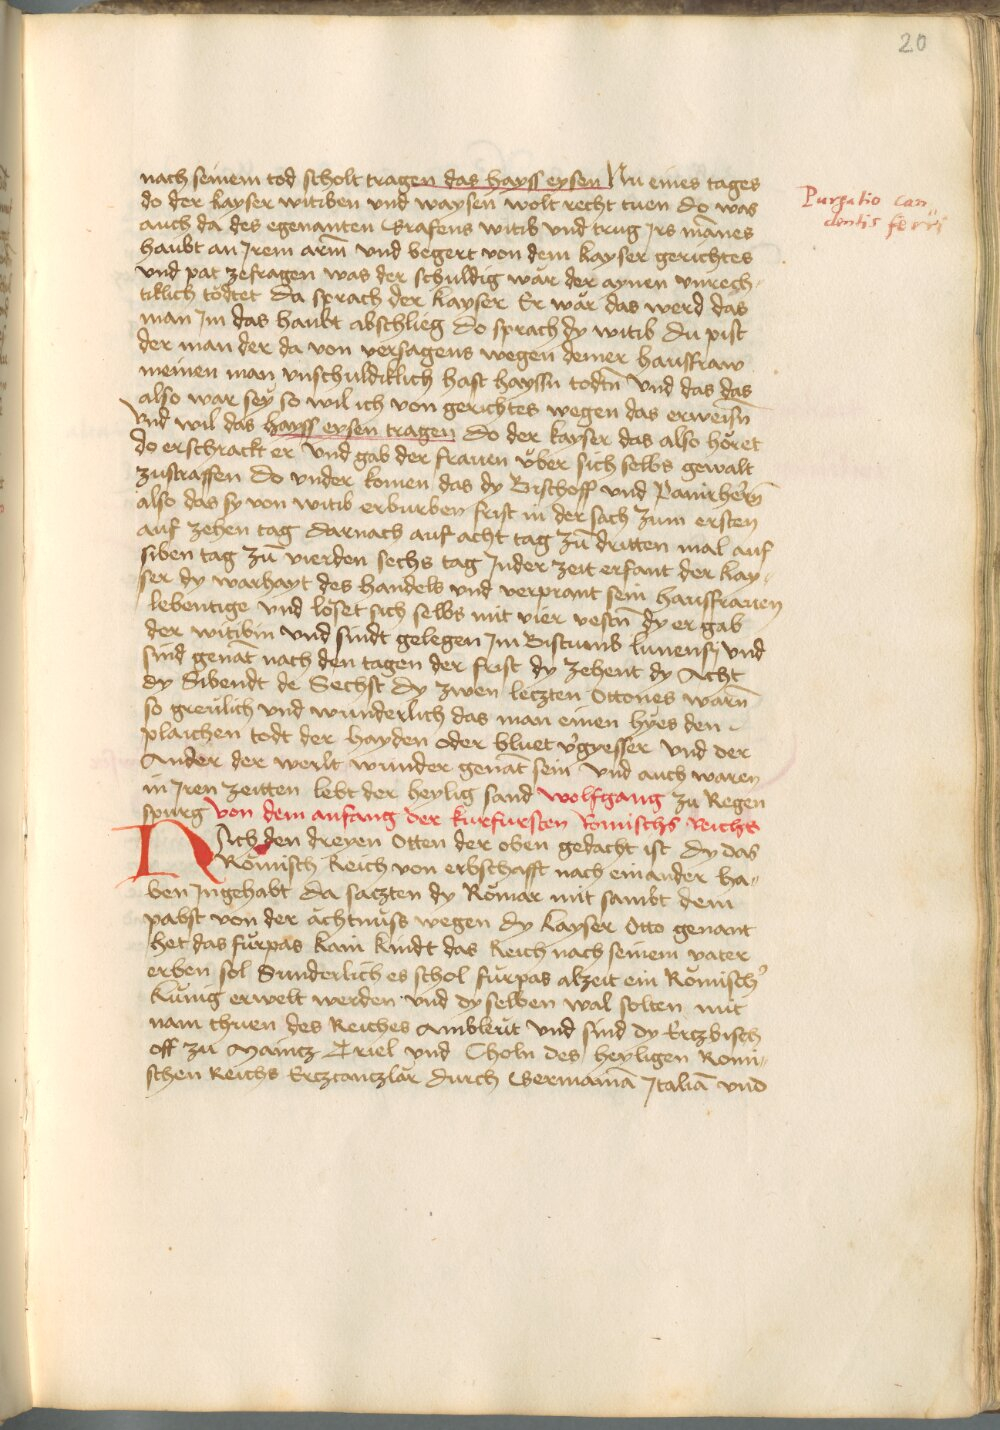 20
nach seinem tod scholt tragen das hayss eysen Nu eines tages
do der kayser witiben vnd waysen wolt recht tuen do was
auch da des egenanten Grafens witib vnd trug Jrs mānes
haubt an Jrem arm vnd begert von dem kayser gerichtes
vnd pat zefragen was der schuldig wär der aynen vnrech-
tiklich tödtet Da sprach der kayser Er wär das werd das
man Jm das haubt abschlieg Do sprach dy witib Du pist
der man der da von versagens wegen deiner hausfraw
meinen man vnschuldiklich hast hayssn todtn vnd das das
also war sey so wil ich von gerichtes wegen das erweisn
Vnd wil das hayss eysen tragen Do der kayser das also höret
do erschrackt er vnd gab der frauen über sich selbs gewalt
zustraffen Do vnder komen das dy Bischoff vnd Panirhern
also das sy von witib erburben frist in der sach zum ersten
auf zehen tag Darnach auf acht tag zū dritten mal auf
siben tag zū vierden sechs tag Jnder zeit erfant der kay-
ser dy warhayt des handels vnd verprant sein hausfrauen
lebentige vnd löset sich selbs mit vier vestn dy er gab
der witibin vnd sindt gelegen Jm Bistumb lunensj vnd
sind genāt nach den tagen der frist dy zehent dy Acht
dy Sibendt de Sechst Dy zwen leczten Ottones warn
so greülich vnd wunderlich das man einen hyes den
plaichen todt der hayden oder bluet v'gyesser vnd der
Ander der werlt wunder genāt sein vnd auch waren
in Jren zeitten lebt der heylig sand wolfgang zu Regen
spurg von dem anfang der kurfursten Romischs Reichs
Nsich den dreyen Otten der oben gedacht ist dy das
Römisch Reich von erbschafft nach einander ha-
ben Jngehabt Da saczten dy Römar mit sambt dem
pabst von der ächtnüss wegen dy kayser Otto genant
het das fürpas kain kindt das Reich nach seinem vater
erben sol Sunderlich es schol fürpas alzeit ein Römisch'
künig erwelt werden vnd dy selben wal solten mit
nam thuen des Reiches Ambleüt vnd sind dy Erczbisch
off zu Maincz Triel vnd Choln des heyligen Romi-
schen Reichs Erczcanczlär durch Germaniā Jtaliā vnd
Purgatio can-
dentis ferri